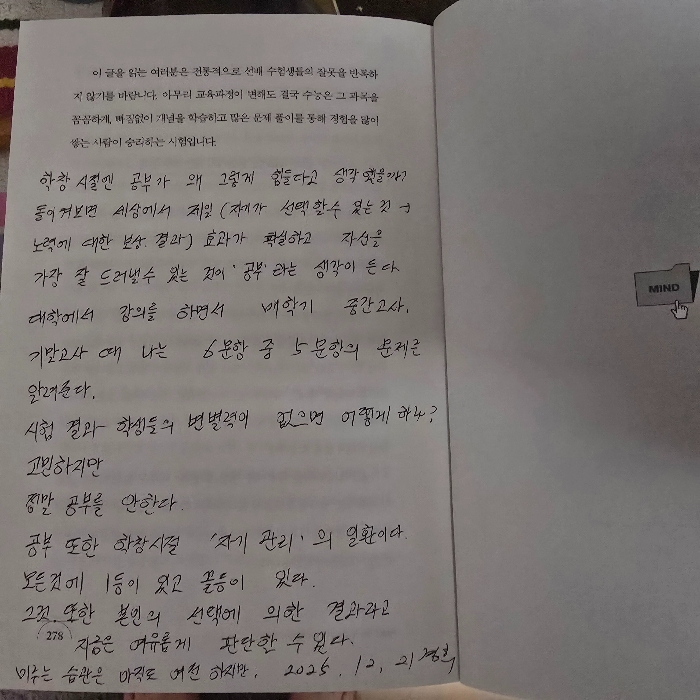 이 글을 읽는 여러분은 전통적으로 선배 수험생들의 잘못을 반복하
지 않기를 바랍니다. 아무리 교육과정이 변해도 결국 수능은 그 과목을
꼼꼼하게, 빠짐없이 개념을 학습하고 많은 문제 풀이를 통해 경험을 많이
쌓는 사람이 승리하는 시험입니다.
학창 시절엔 공부가 왜 그렇게 힘들다고 생각했을까?
돌이켜보면 세상에서 제일 (자기가 선택할 수 있는 것 →
노력에 대한 보상. 결과) 효과가 확실하고 자신을
가장 잘 드러낼 수 있는 것이 '공부'라는 생각이 든다.
대학에서 강의를 하면서 매학기 중간고사,
기말고사 때 나는 6문항 중 5문항의 문제를
알려준다.
시험 결과 학생들의 변별력이 없으면 어떻게 하나?
고민하지만
정말 공부를 안한다.
공부 또한 학창시절 '자기 관리'의 일환이다.
모든것에 1등이 있고 꼴등이 있다.
그것 또한 본인의 선택에 의한 결과라고
지금은 여유롭게 판단할 수 있다.
278
미루는 습관은 아직도 여전하지만. 2025. 12. 21
MIND